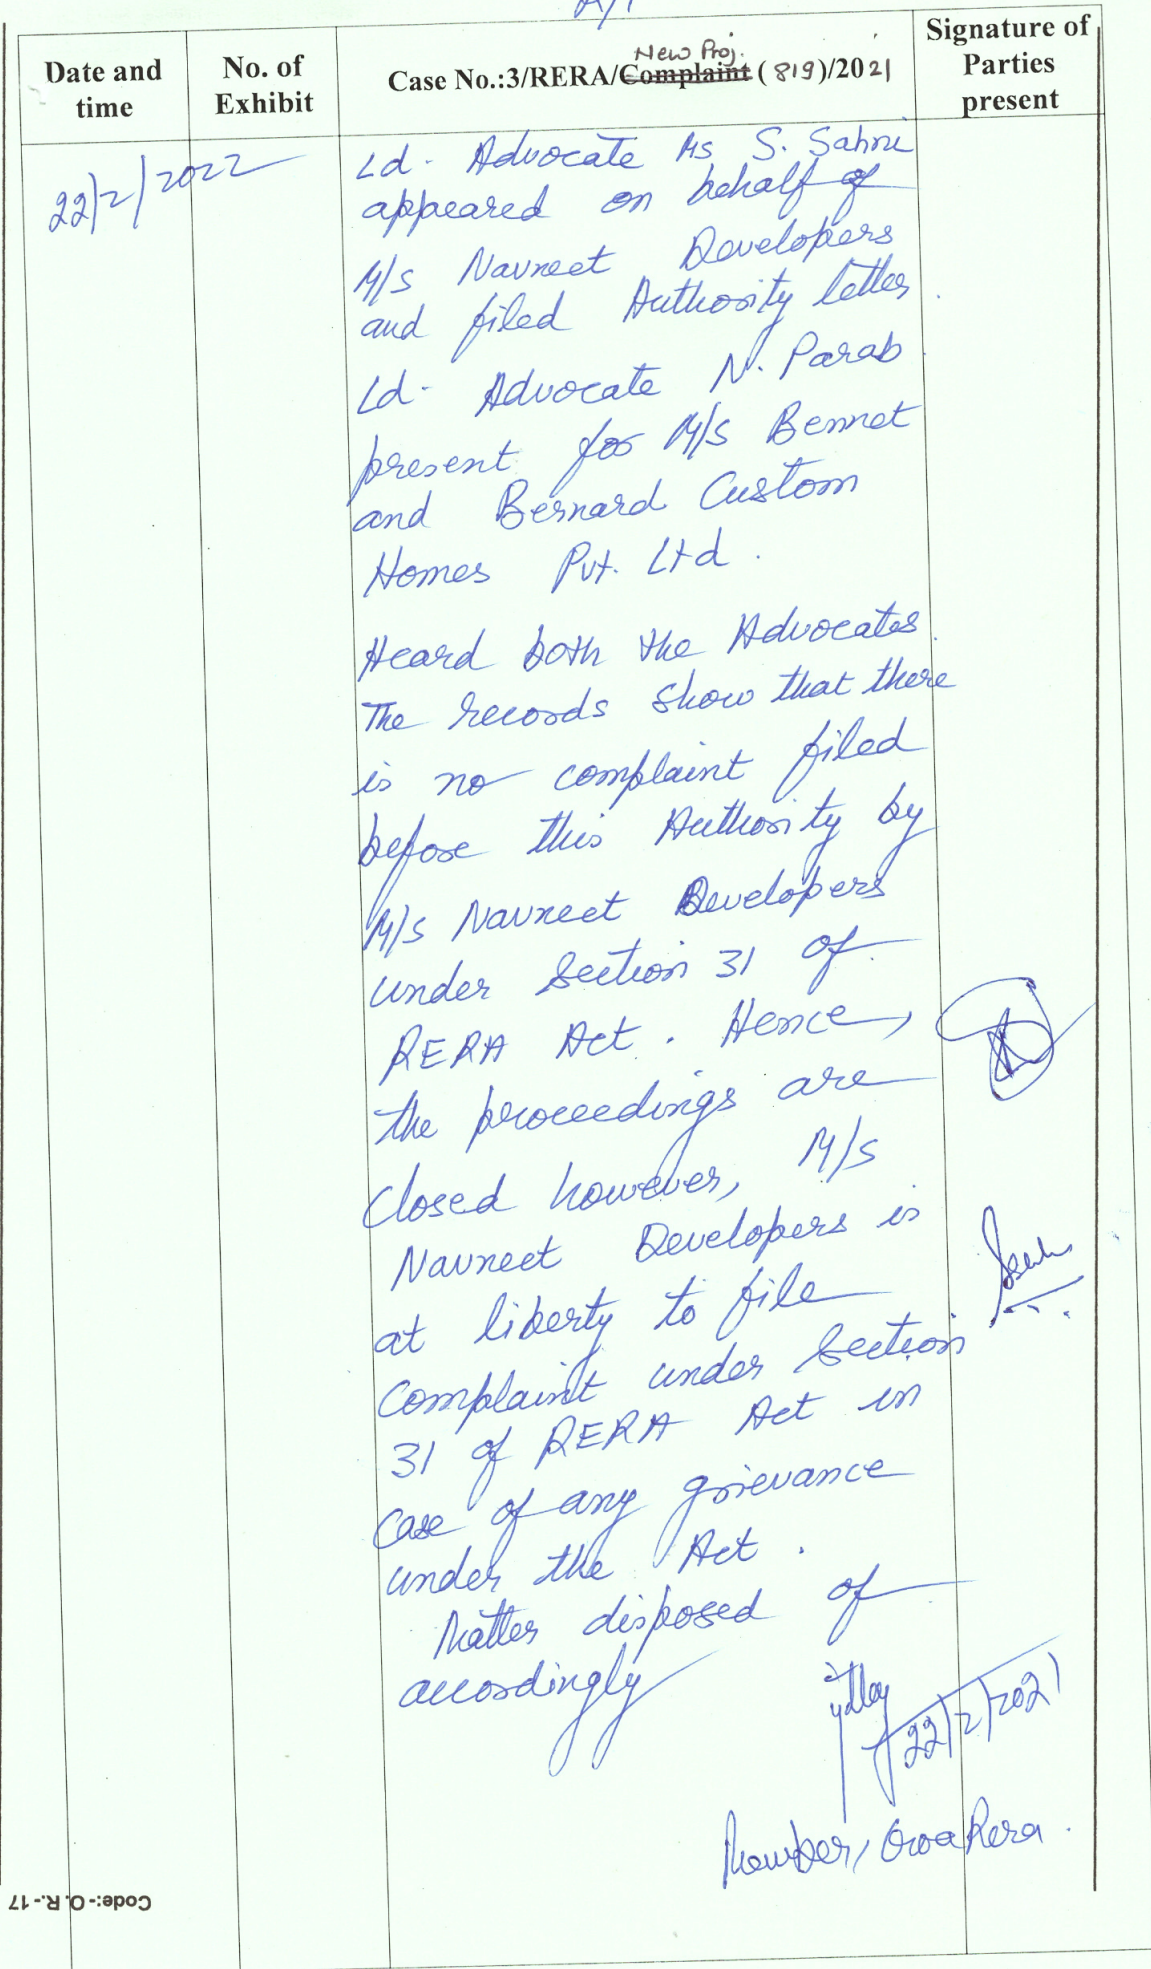 Date and time
No. of Exhibit
New Proj.
Case No.:3/RERA/Complaint (819)/2021
Signature of Parties present
22/2/2022
Ld. Advocate Ms S. Sahni
appeared on behalf of
M/s Navneet Developers
and filed Authority letter.
Ld. Advocate N. Parab
present for M/s Bennet
and Bernard Custom
Homes Pvt. Ltd.
Heard both the Advocates.
The records show that there
is no complaint filed
before this Authority by
M/s Navneet Developers
under Section 31 of
RERA Act. Hence,
the proceedings are
closed however, M/s
Navneet Developers is
at liberty to file
complaint under Section
31 of RERA Act in
case of any grievance
under the Act.
Matter disposed of
accordingly
22/2/2021
Member, Goa Rera.
Code:-O.R.-17